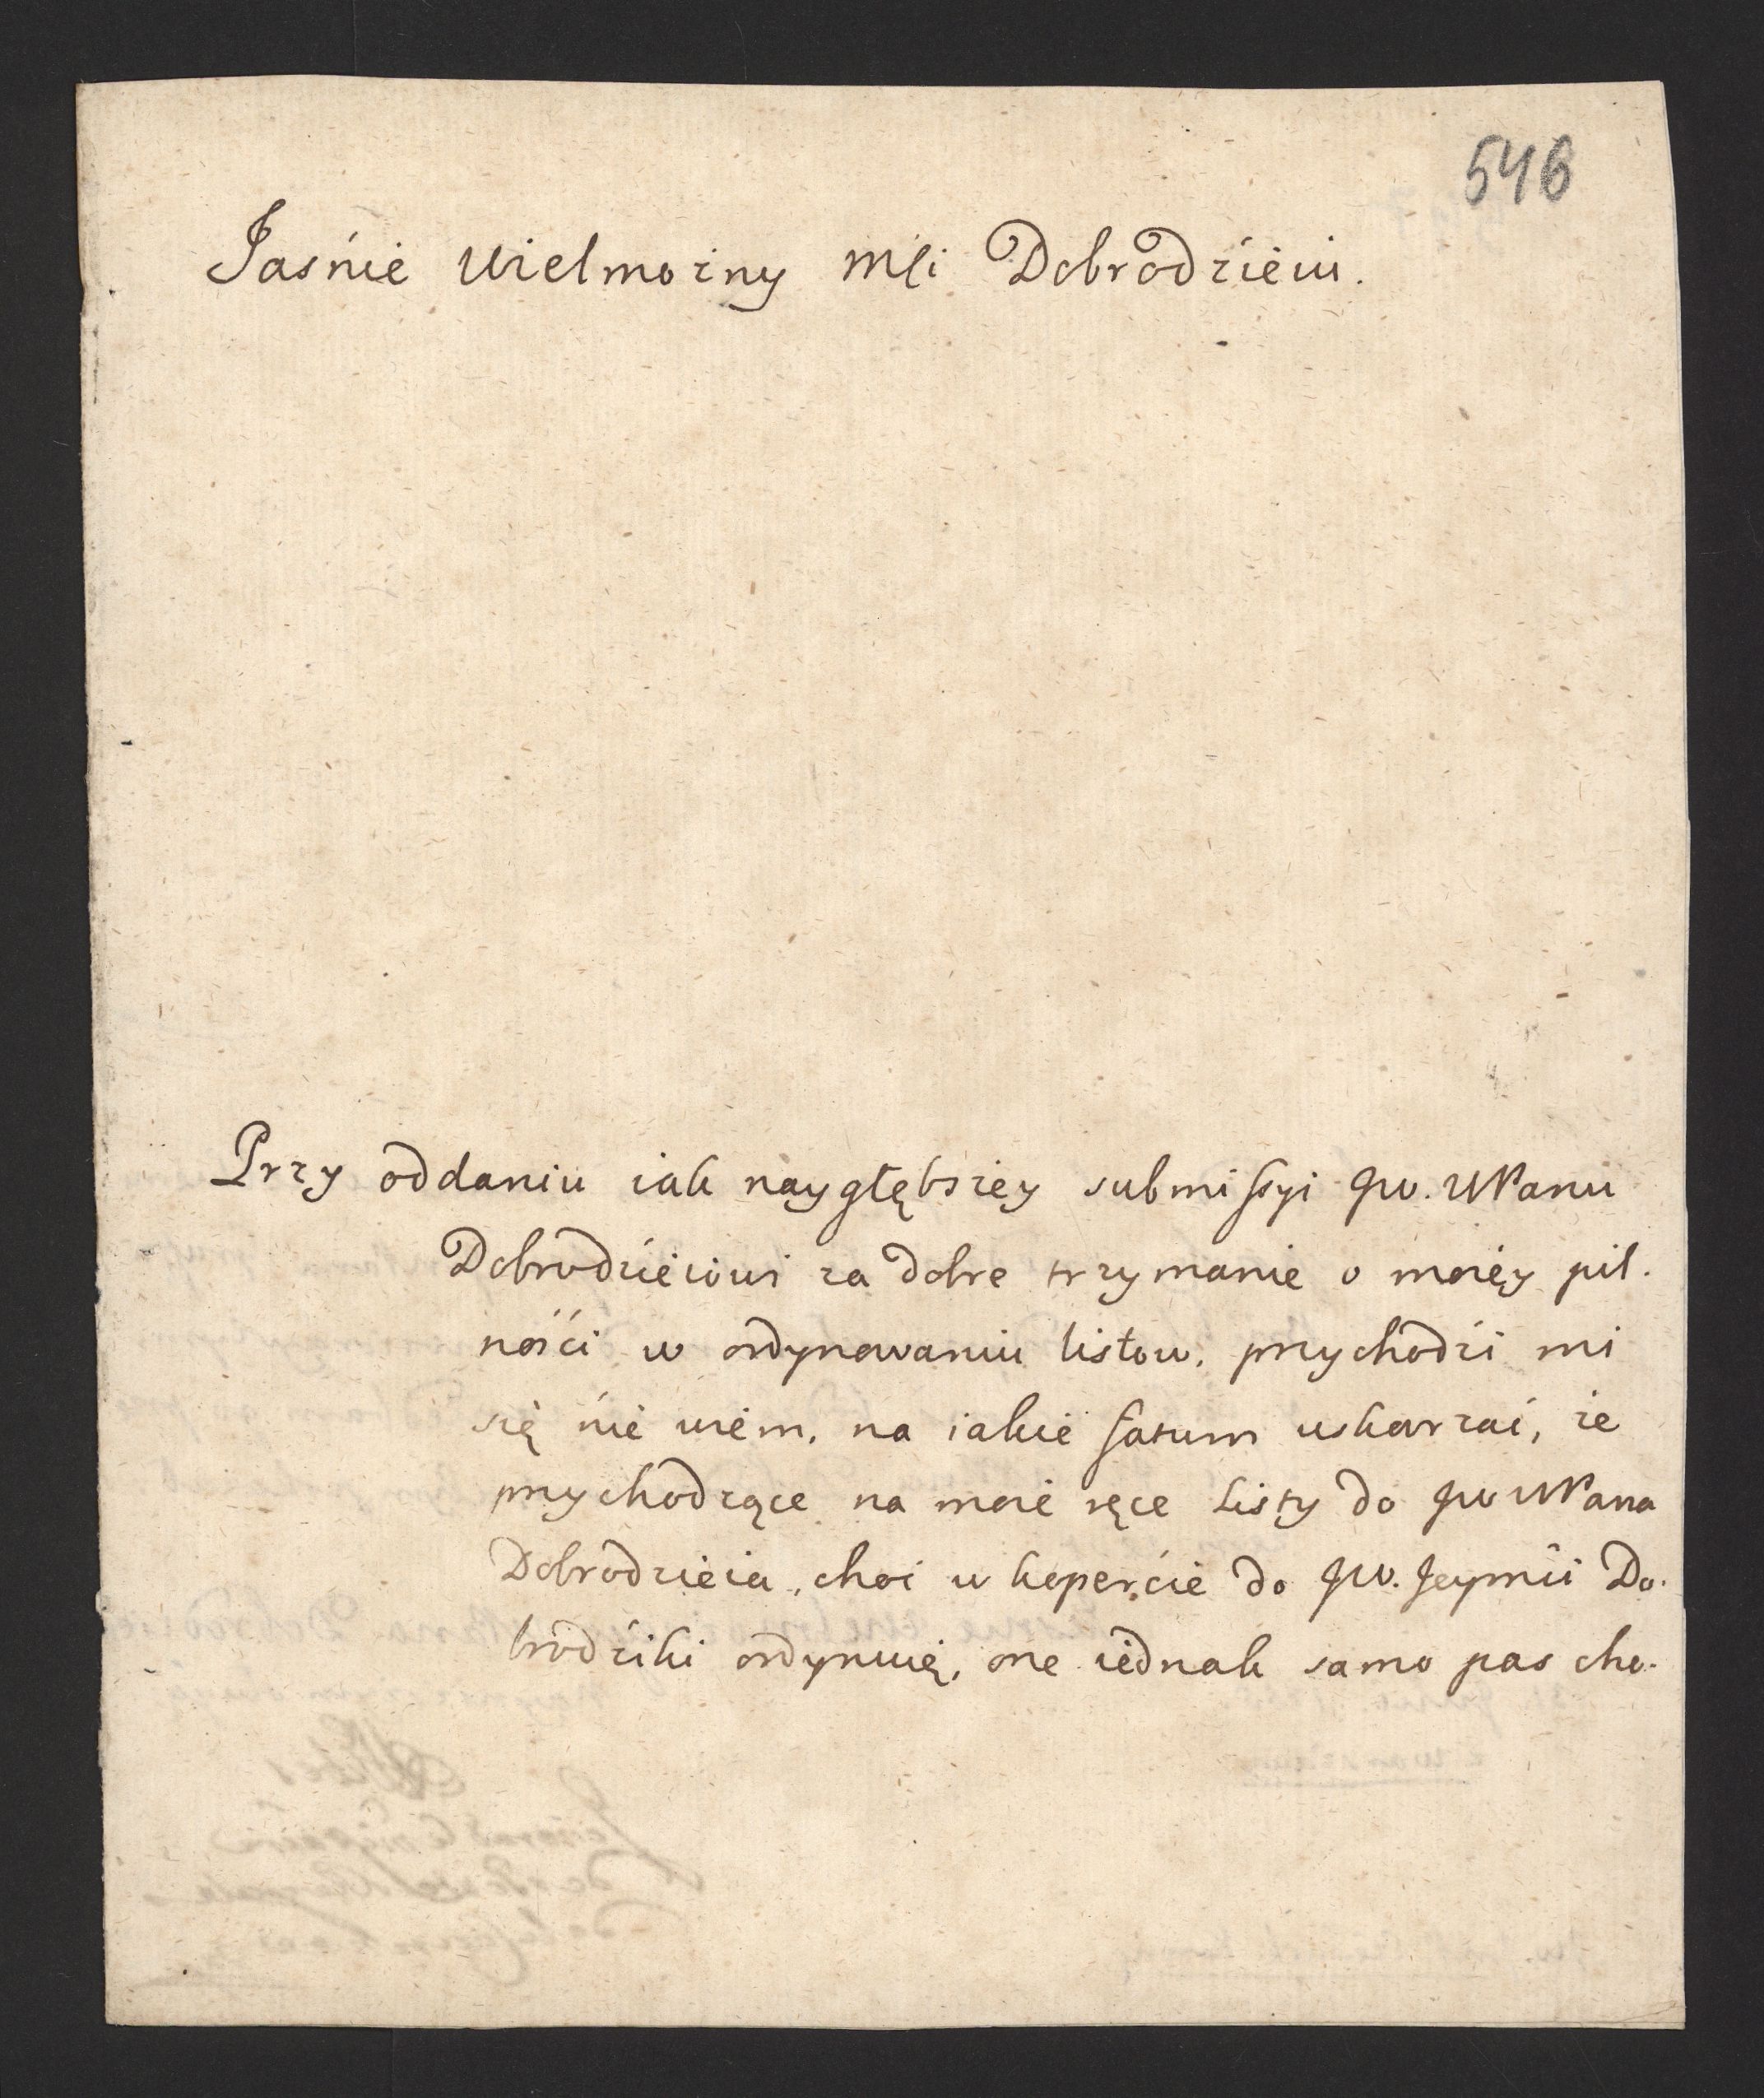 546
Jaśnie Wielmożny Mći Dobrodźieiu.
Przy oddaniu iak naygłębszey submissyi JW. WPanu
Dobrodźieiowi za dobre trzymanie o moiey pil-
ności w ordynowaniu listow, przychodźi mi
się nie wiem, na iakie fatum uskarzać, że
przychodzące na moie ręce Listy do JW WPana
Dobrodzieia, choć w kopercie do JW. Jeymći Do-
brodźiki ordynuię, one iednak samo pas cho-